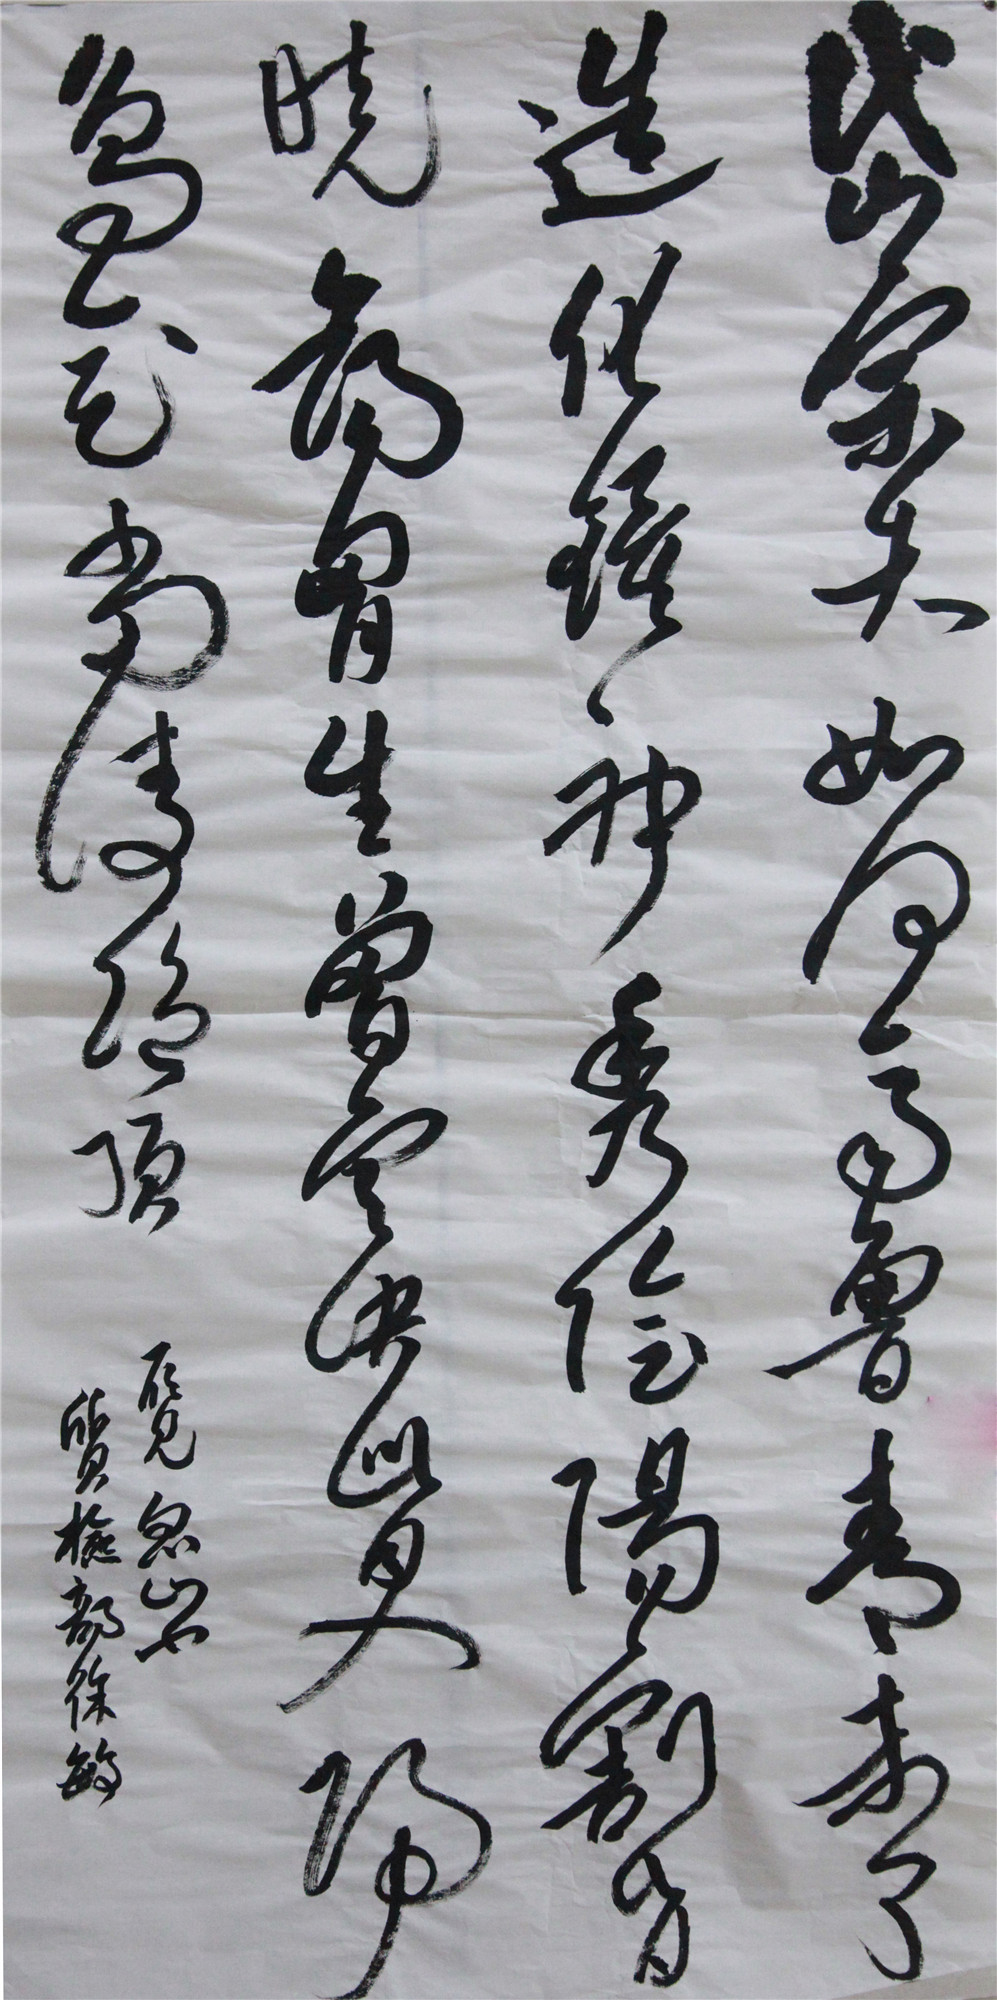 岱宗夫如何齊魯青未了
造化鍾神秀陰陽割昏
曉蕩胸生曾雲決眥入歸
鳥會當凌絕頂
覽眾山小
質檢部徐敏